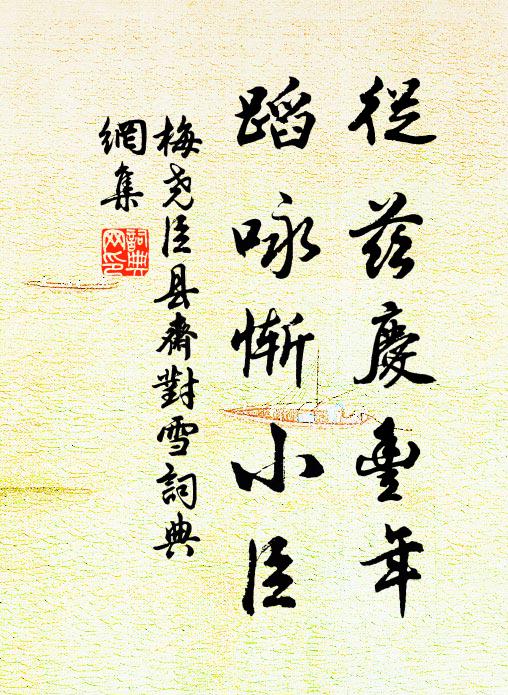 從茲慶豐年
蹈咏慚小臣
梅堯臣县齋對雪詞典
網集
詞典
网印